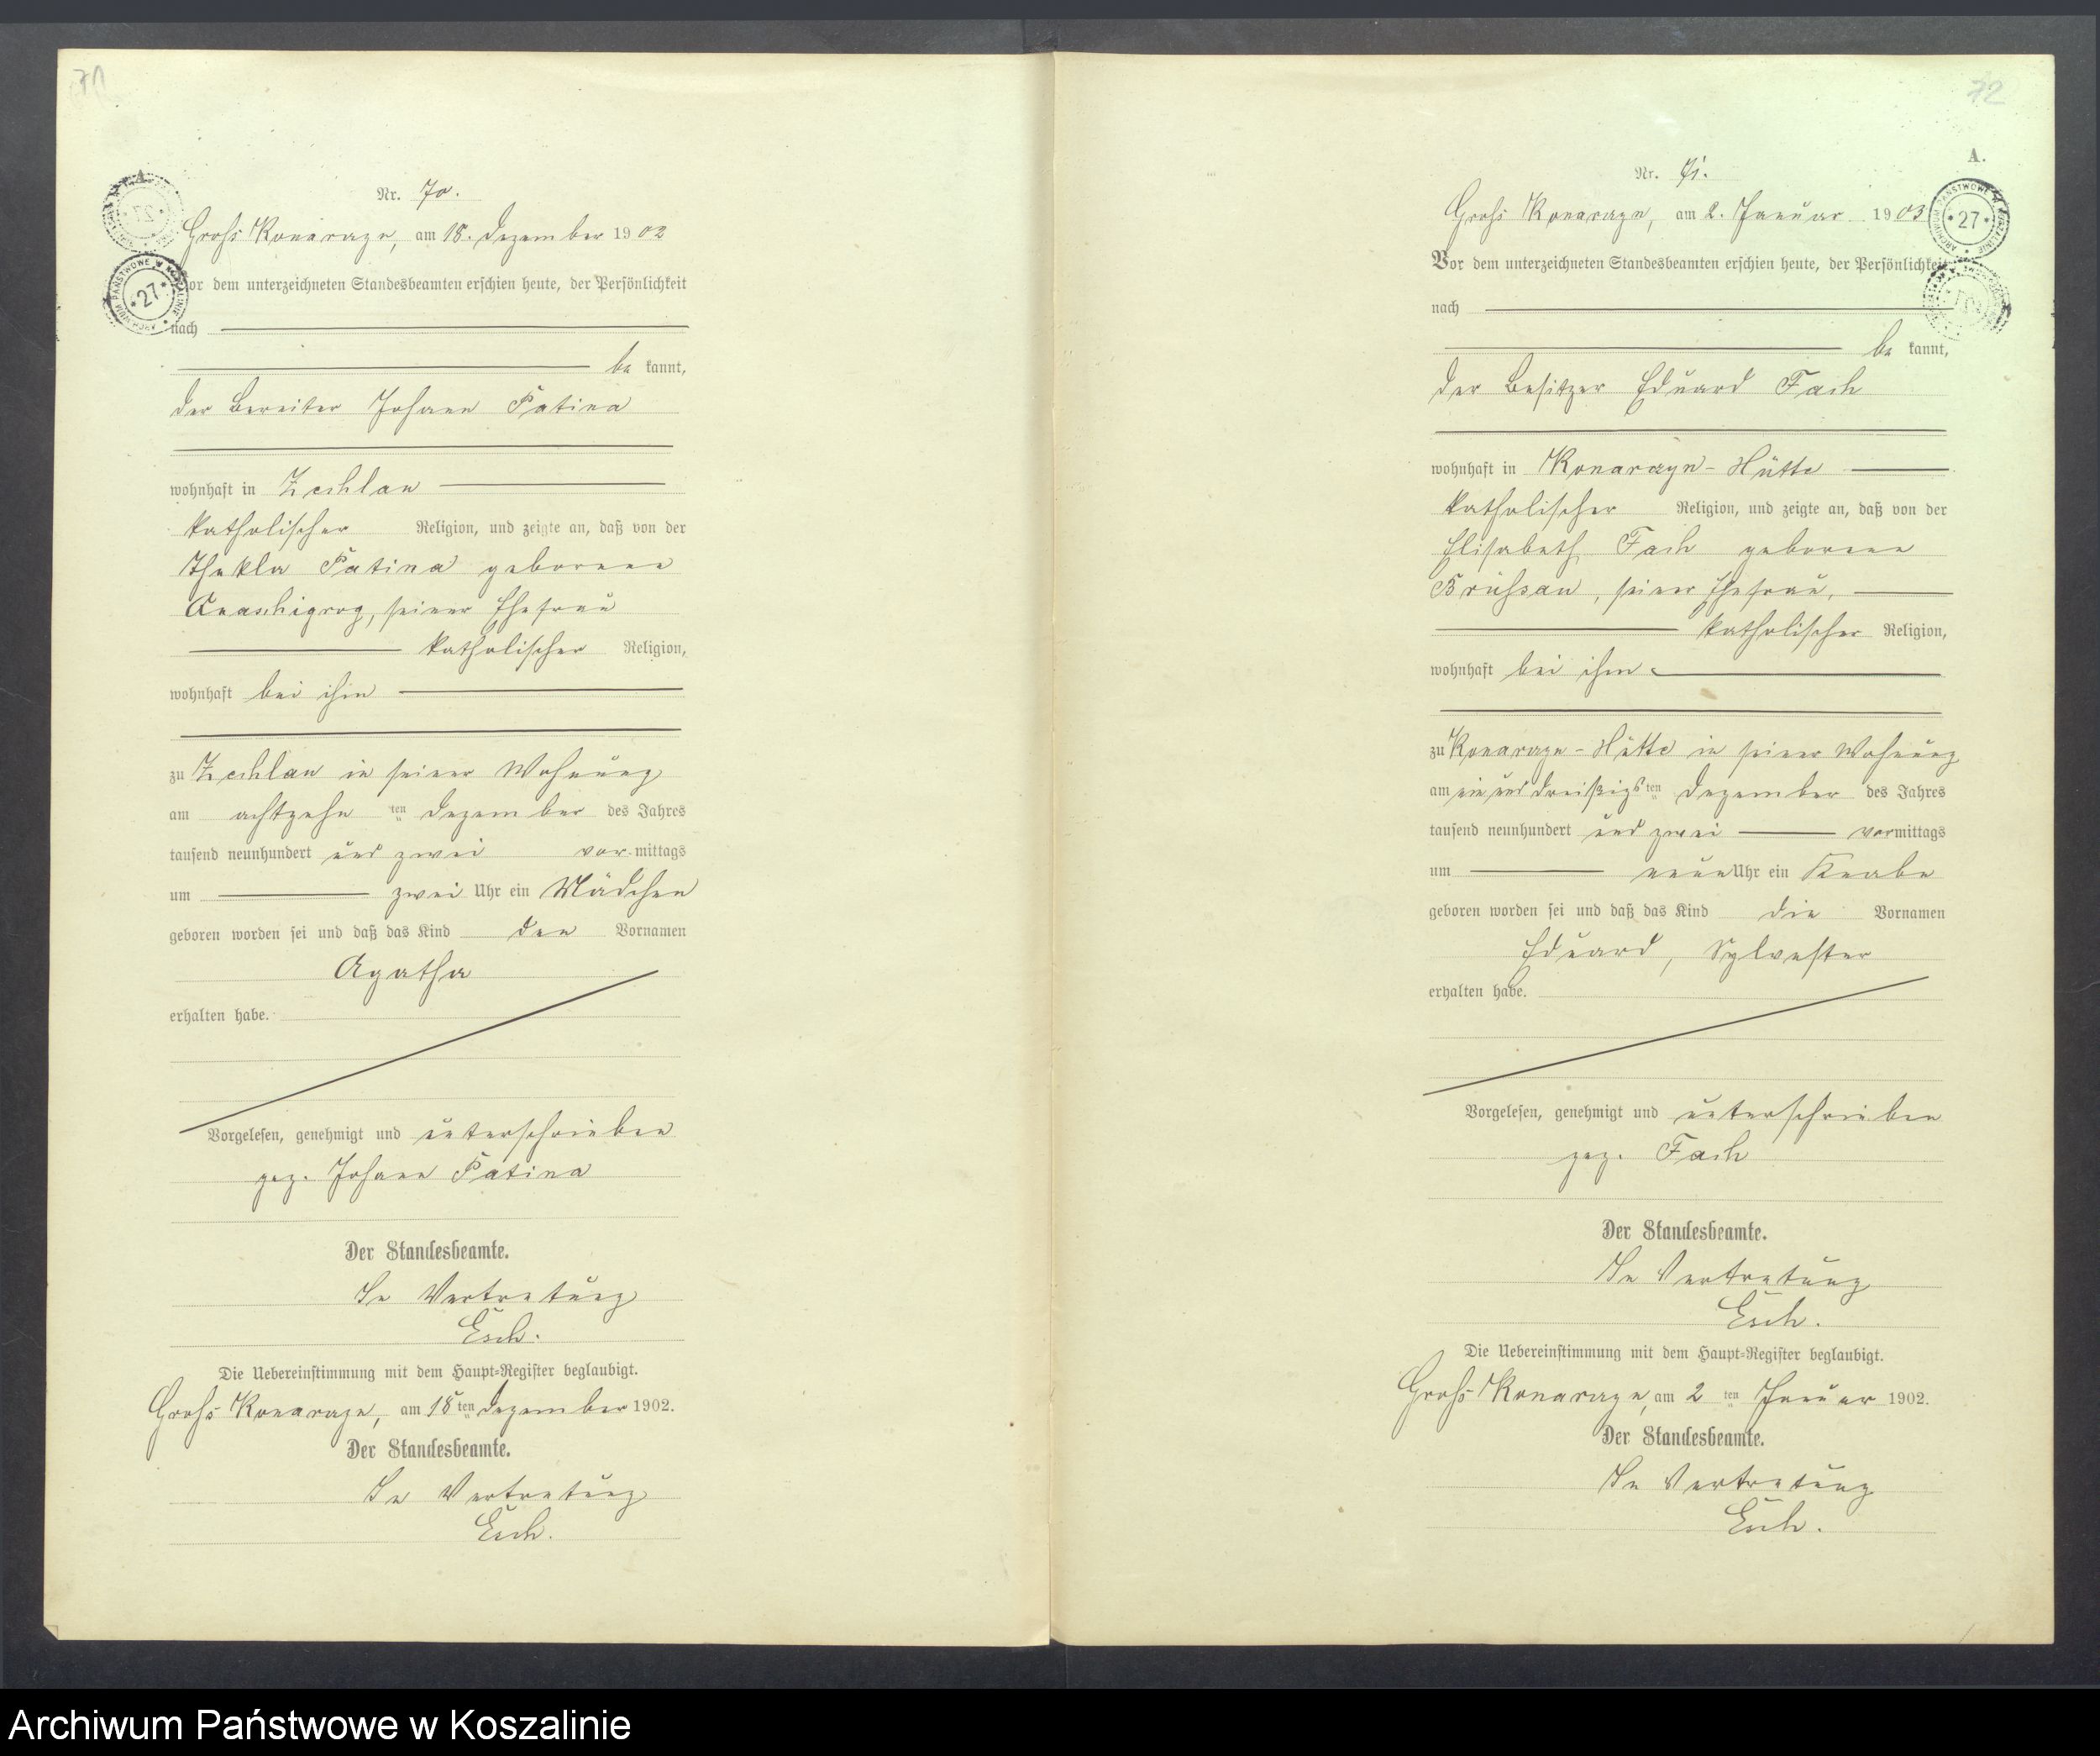 71
Nr. 70.
Groß Konarzyn, am 18. Dezember 1902
Vor dem unterzeichneten Standesbeamten erschien heute, der Persönlichkeit
nach
be kannt,
der Bereiter Johann Patina
wohnhaft in Zechlau
katholischer Religion, und zeigte an, daß von der
Thekla Patina geborene
seiner Ehefrau
katholischer Religion,
wohnhaft bei ihm
zu Zechlau in seiner Wohnung
am achtzehn ten Dezember des Jahres
tausend neunhundert und zwei vor mittags
um zwei Uhr ein Mädchen
geboren worden sei und daß das Kind den Vornamen
Agatha
erhalten habe.
Vorgelesen, genehmigt und unterschrieben
gez. Johann Patina
Der Standesbeamte.
In Vertretung
Esch.
Die Uebereinstimmung mit dem Haupt-Register beglaubigt.
Groß Konarzyn, am 18 ten Dezember 1902.
Der Standesbeamte.
In Vertretung
Esch.
72
A.
ARCHIWUM PAŃSTWOWE W KOSZALINIE
27
Nr. 71.
Groß Konarzyn, am 2. Januar 1903
Vor dem unterzeichneten Standesbeamten erschien heute, der Persönlichkeit
nach
be kannt,
der Besitzer Eduard Fach
wohnhaft in Konarzyn-Hütte
katholischer Religion, und zeigte an, daß von der
Elisabeth Fach geborene
Brüßau, seiner Ehefrau,
katholischer Religion,
wohnhaft bei ihm
zu Konarzyn-Hütte in seiner Wohnung
am ein und dreißigs ten Dezember des Jahres
tausend neunhundert und zwei vormittags
um neun Uhr ein Knabe
geboren worden sei und daß das Kind die Vornamen
Eduard, Sylvester
erhalten habe.
Vorgelesen, genehmigt und unterschrieben
gez. Fach
Der Standesbeamte.
In Vertretung
Esch.
Die Uebereinstimmung mit dem Haupt-Register beglaubigt.
Groß Konarzyn, am 2 ten Januar 1902.
Der Standesbeamte.
In Vertretung
Esch.
Archiwum Państwowe w Koszalinie